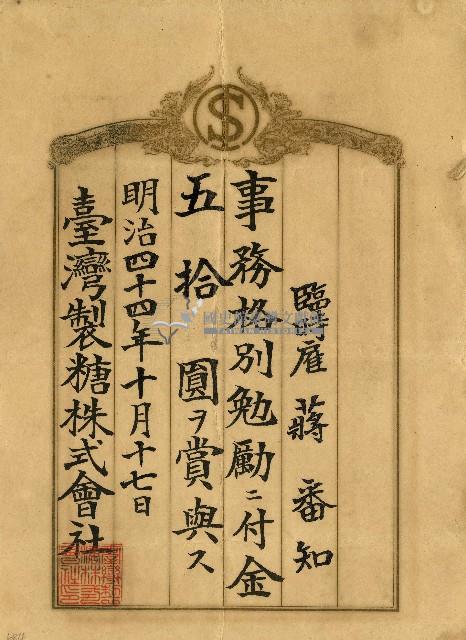 臨時雇 蔣番知
事務格別勉勵ニ付金
五拾圓ヲ賞與ス
明治四十四年十月十七日
臺灣製糖株式會社